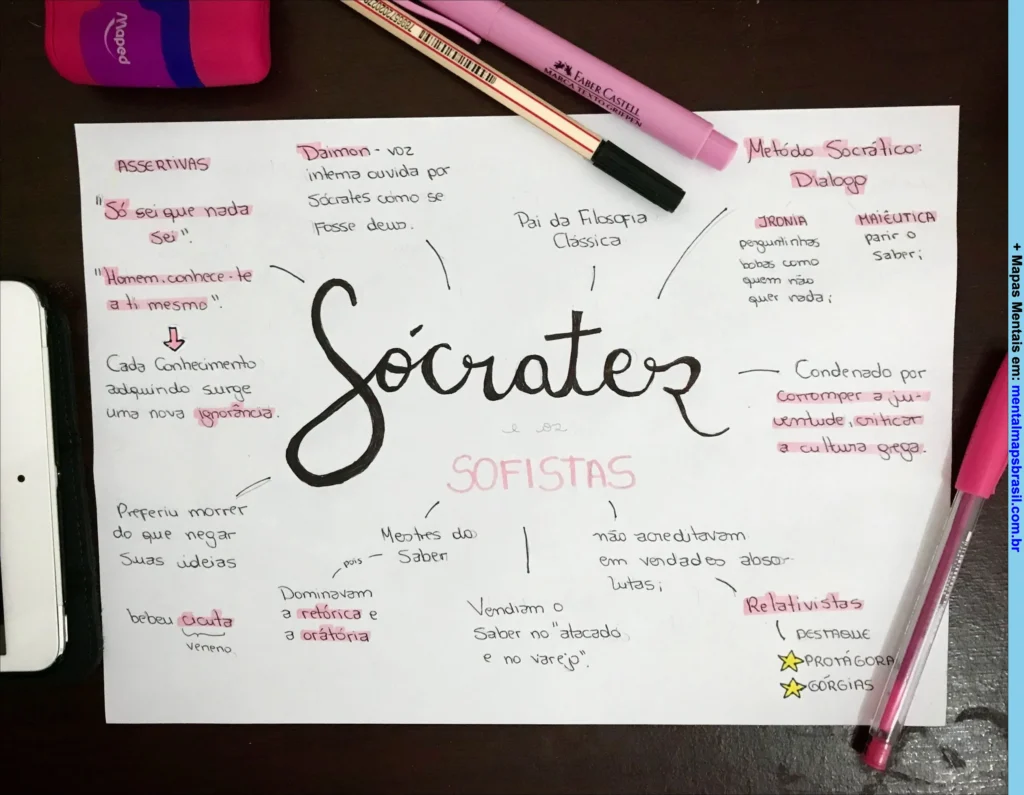 Maped
FABER CASTELL
MARCA TEXTO GRIFPEN
ASSERTIVAS
"Só sei que nada
sei".
"Homem, conhece-te
a ti mesmo".
Cada Conhecimento
adquirido surge
uma nova ignorância.
Daimon - voz
interna ouvida por
Sócrates como se
fosse deus.
Pai da Filosofia
Clássica
Metódo Socrático:
Dialogo
IRONIA
perguntinhas
bobas como
quem não
quer nada;
MAIÊUTICA
parir o
saber;
Sócrates
e os
SOFISTAS
Condenado por
corromper a ju-
ventude, criticar
a cultura grega.
Preferiu morrer
do que negar
suas ideias
bebeu cicuta
veneno
Mestres do
Saber
pois
Dominavam
a retórica e
a orátória
Vendiam o
Saber no "atacado
e no varejo".
não acreditavam
em verdades absor-
lutas;
Relativistas
DESTAQUE
PROTÁGORA
GÓRGIAS
+ Mapas Mentais em: mentalmapsbrasil.com.br